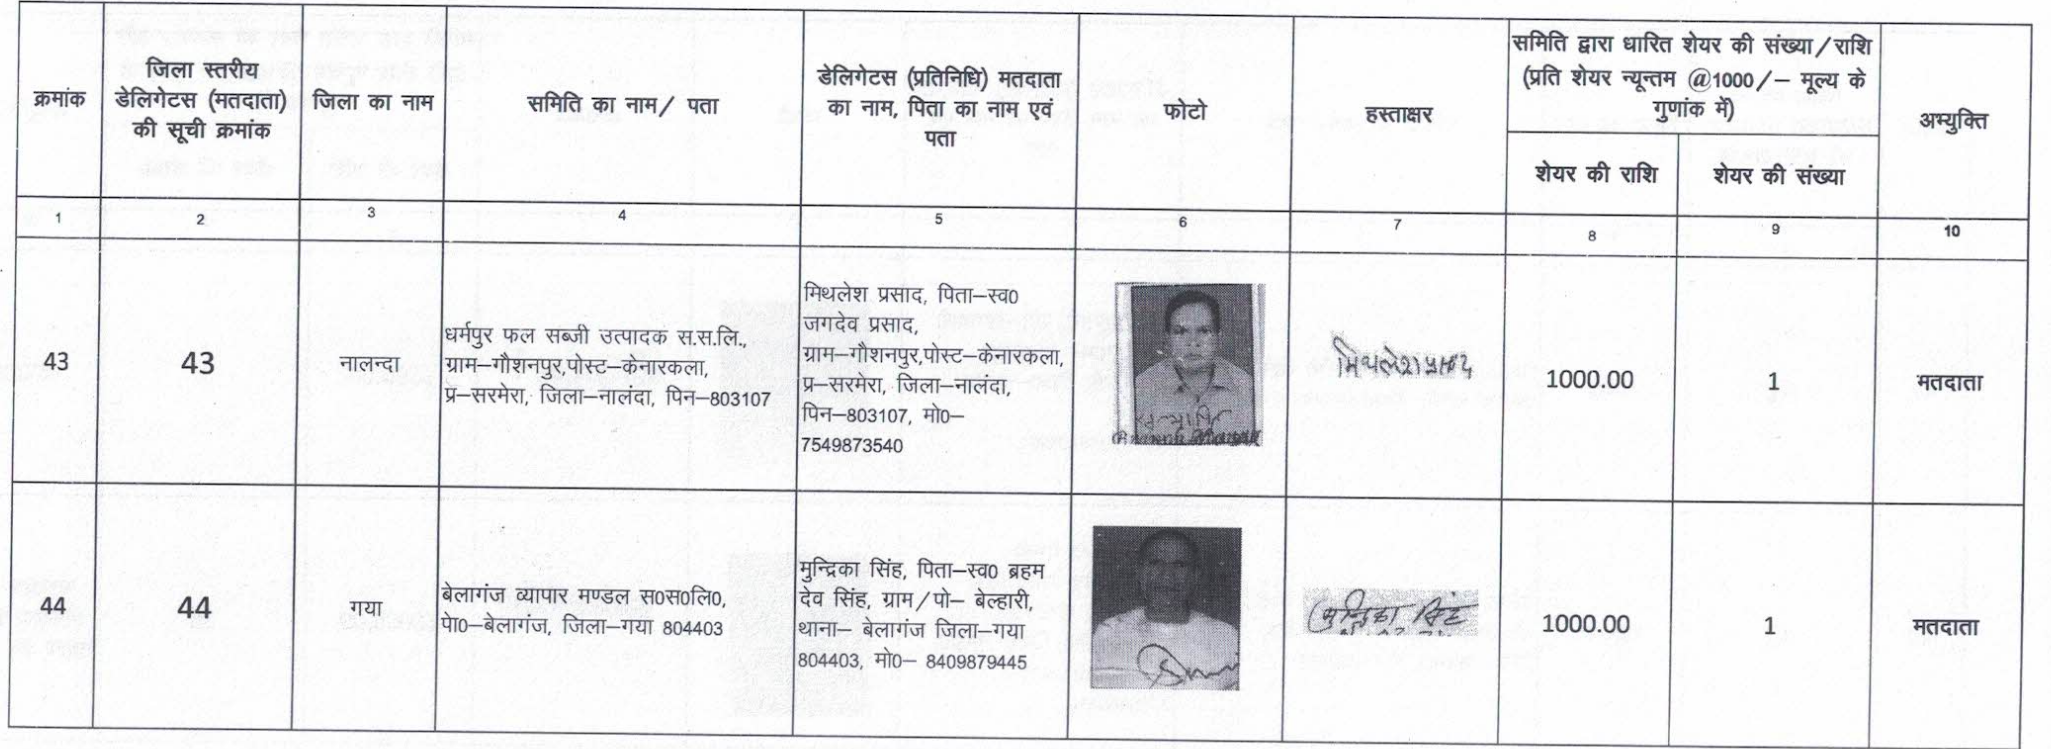 क्रमांक
जिला स्तरीय
डेलिगेटस (मतदाता)
की सूची क्रमांक
जिला का नाम
समिति का नाम/ पता
डेलिगेटस (प्रतिनिधि) मतदाता
का नाम, पिता का नाम एवं
पता
फोटो
हस्ताक्षर
समिति द्वारा धारित शेयर की संख्या/राशि
(प्रति शेयर न्यून्तम @1000/– मूल्य के
गुणांक में)
शेयर की राशि
शेयर की संख्या
अभ्युक्ति
1
2
3
4
5
6
7
8
9
10
43
43
नालन्दा
धर्मपुर फल सब्जी उत्पादक स.स.लि.,
ग्राम–गौशनपुर,पोस्ट–केनारकला,
प्र–सरमेरा, जिला–नालंदा, पिन–803107
मिथलेश प्रसाद, पिता–स्व0
जगदेव प्रसाद,
ग्राम–गौशनपुर,पोस्ट–केनारकला,
प्र–सरमेरा, जिला–नालंदा,
पिन–803107, मो0–
7549873540
मिथलेश प्रसाद
1000.00
1
मतदाता
44
44
गया
बेलागंज व्यापार मण्डल स0स0लि0,
पेा0–बेलागंज, जिला–गया 804403
मुन्द्रिका सिंह, पिता–स्व0 ब्रहम
देव सिंह, ग्राम/पो– बेल्हारी,
थाना– बेलागंज जिला–गया
804403, मो0– 8409879445
मुन्द्रिका सिंह
1000.00
1
मतदाता